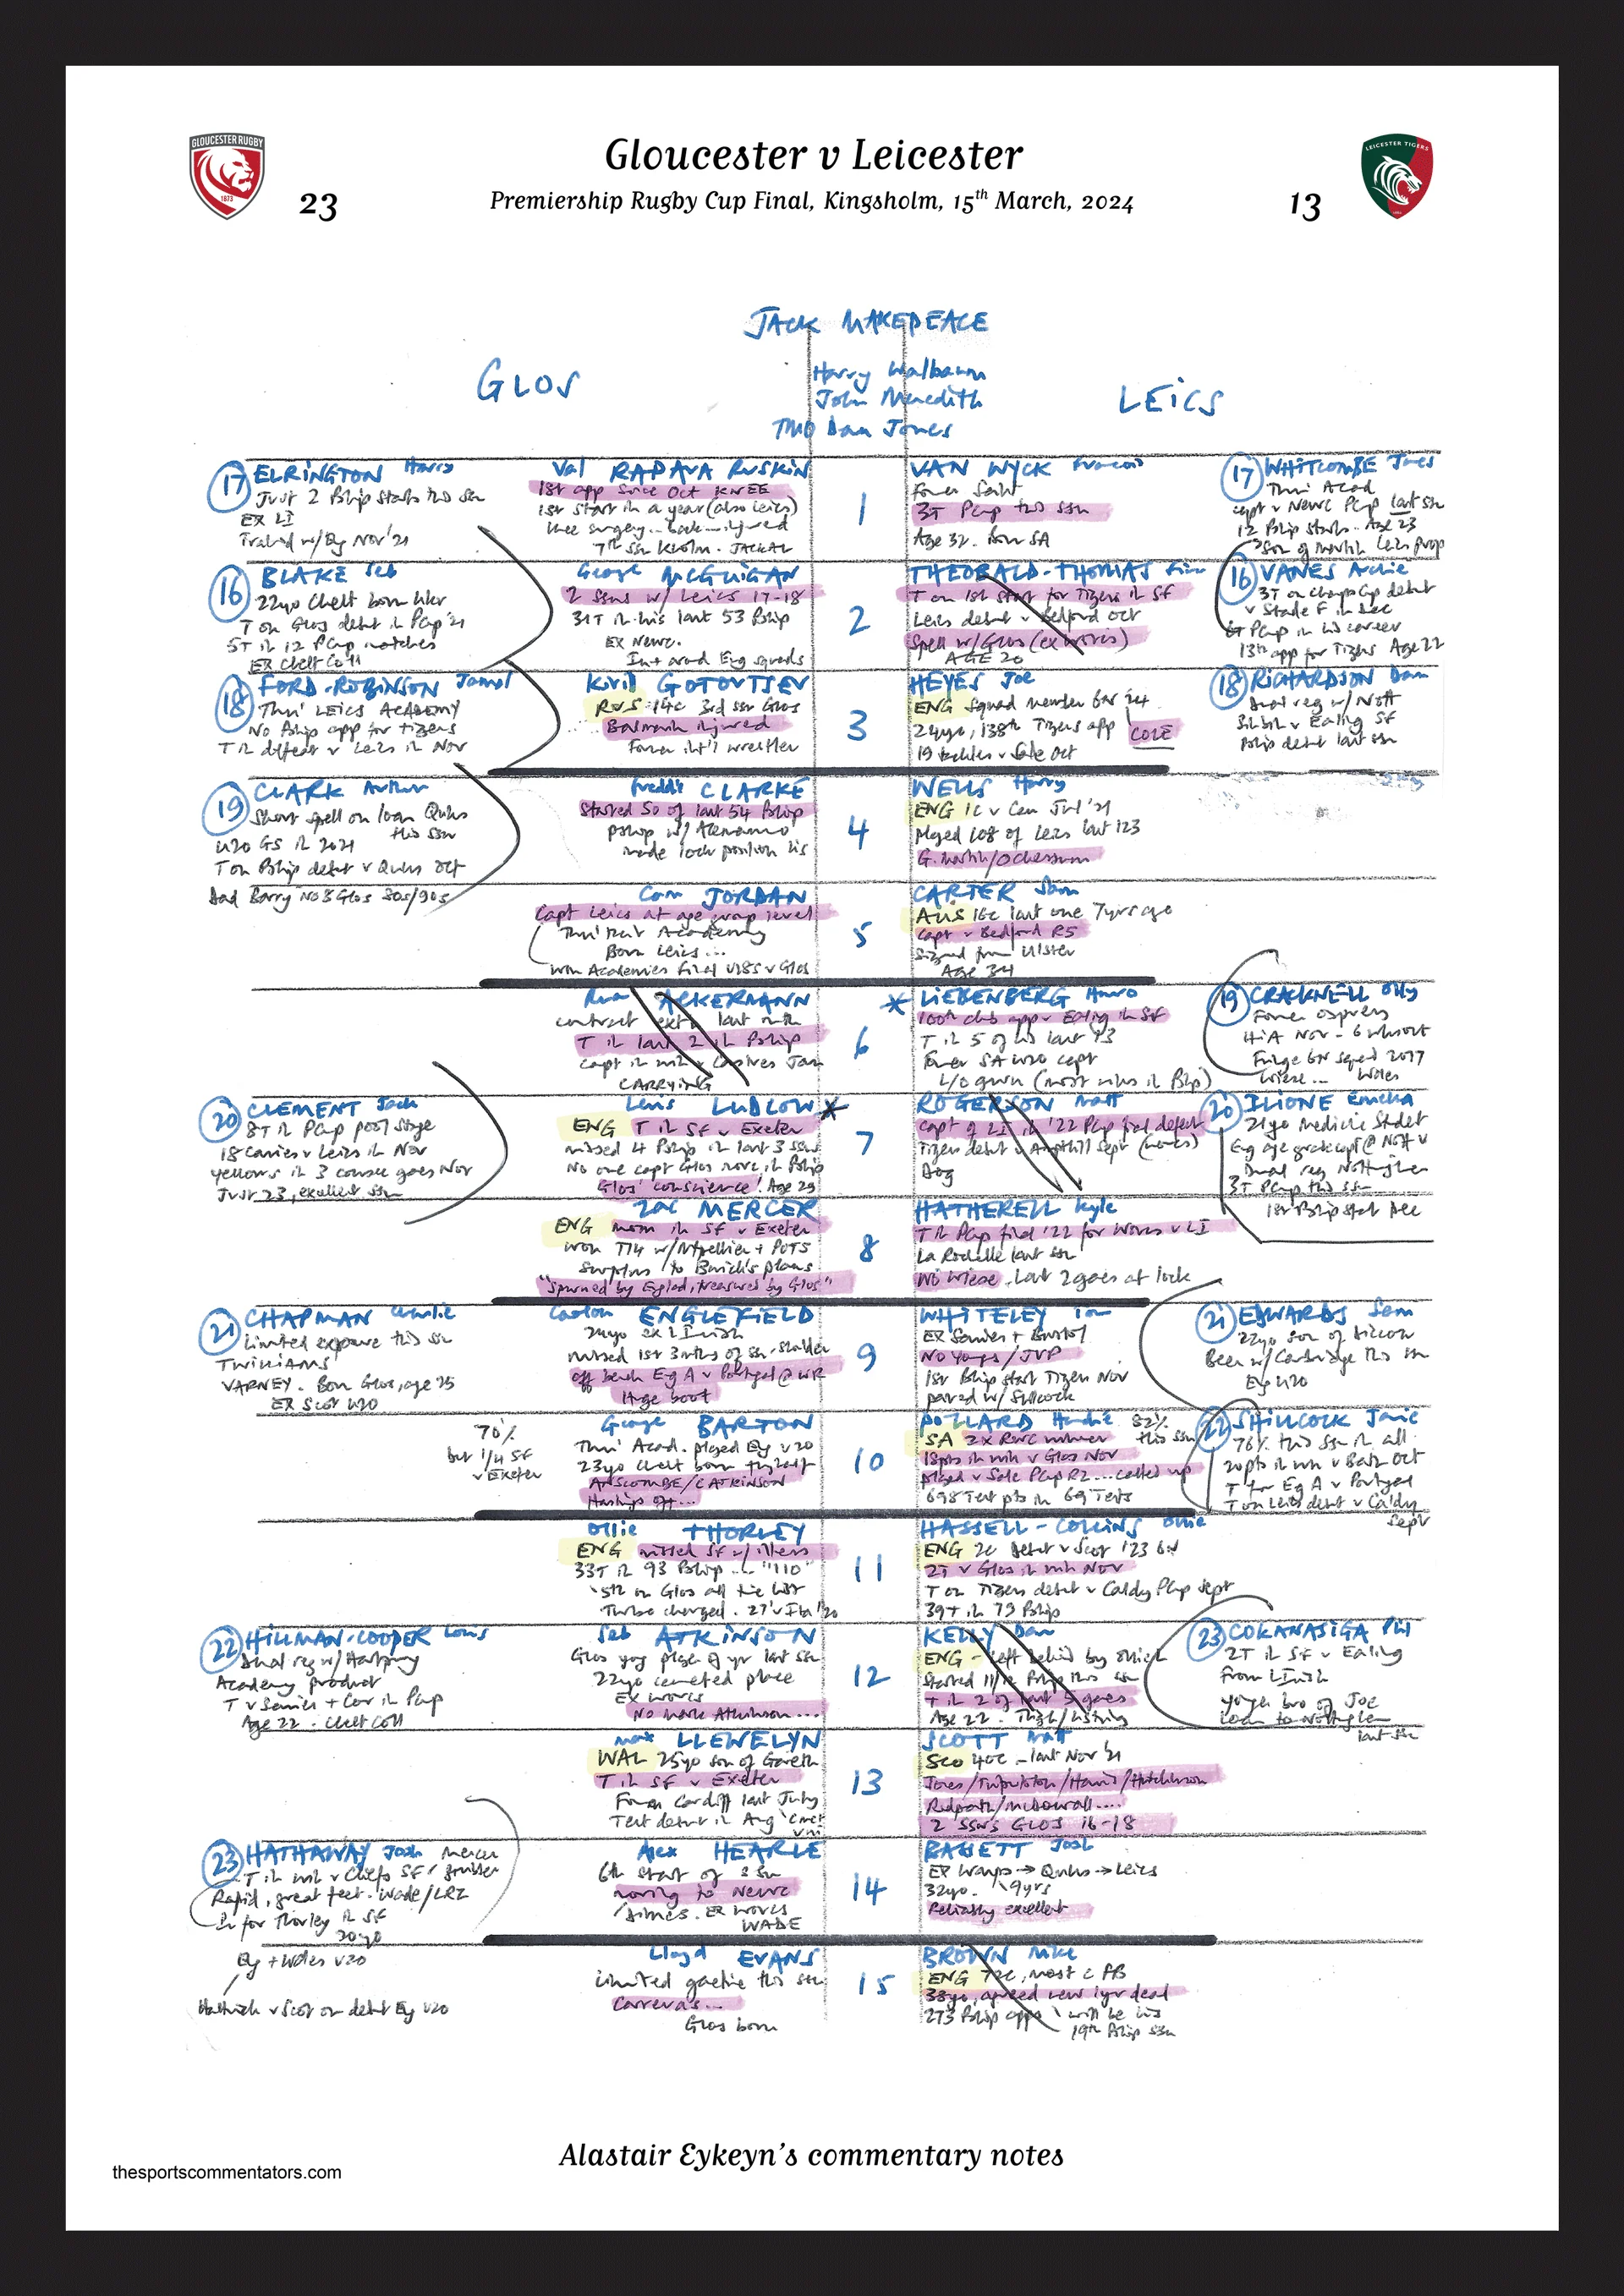 GLOUCESTER RUGBY
1873
LEICESTER TIGERS
Gloucester v Leicester
23
Premiership Rugby Cup Final, Kingsholm, 15th March, 2024
13
JACK MAKEPEACE
Harry Walbaum
John Meredith
TMO Dan Jones
GLOS
LEICS
17 ELRINGTON Harry
Just 2 Pship starts this ssn
EX LI
Trained w/ Eg Nov '21
Val RAPAVA RUSKIN
1st app since Oct KNEE
1st start in a year (also Leics)
knee surgery... back... injured
7th ssn K'holm. JACKAL
1
VAN WYCK Francois
Former Saint
3T Pcup this ssn
Age 32. Born SA
17 WHITCOMBE James
Thru' Acad
capt v Newc Pcup last ssn
12 Pship starts. Age 23
Son of Martin Leics prop
16 BLAKE Seb
22yo Chelt born hkr
T on Glos debut in Pcup '21
5T in 12 Pcup matches
EX Chelt Coll
George McGUIGAN
2 ssns w/ Leics 17-18
31T in his last 53 Pship
EX Newc.
In + around Eng squads
2
THEOBALD-THOMAS Finn
T on 1st start for Tigers in SF
Leics debut v Bedford Oct
Spell w/ Glos (ex Worcs)
AGE 20
16 VANES Archie
3T on Champs Cup debut
v Stade F in Dec
6T Pcup in his career
13th app for Tigers Age 22
18 FORD-ROBINSON Jamal
Thru' LEICS ACADEMY
No Pship app for Tigers
T in defeat v Leics in Nov
Kirill GOTOVTSEV
RUS 14c 3rd ssn Glos
Balmain injured
Former int'l wrestler
3
HEYES Joe
ENG Squad member 6N '24
24yo, 138th Tigers app
COLE
19 tackles v Sale Oct
18 RICHARDSON Dan
Dual reg w/ Nott
Pship debut last ssn
19 CLARK Arthur
Short spell on loan Quins
this ssn
U20 GS in 2021
T on Pship debut v Quins Oct
Dad Barry No8 Glos 80s/90s
Freddie CLARKE
Started 50 of last 54 Pship
pship w/ Alemanno
made lock position his
4
WELLS Harry
ENG 1c v Can Jul '21
Played 108 of Leics last 123
G. Martin/O Chessum
Cam JORDAN
Capt Leics at age group level
Thru' their Academy
Born Leics...
Won Academies final U18s v Glos
5
CARTER Sam
AUS 16c last one 7yrs ago
Capt v Bedford R5
Signed from Ulster
Age 34
Ruan ACKERMANN
contract ext last mth
T in last 2 in Pship
capt in win v Castres Jan
CARRYING
6
LIEBENBERG Hanro
100th club app v Ealing in SF
T in 5 of his last 13
Former SA U20 capt
L/O gwn (most wins in Pship)
19 CRACKNELL Olly
Former Ospreys
HIA Nov - 6 wks out
Fringe 6N squad 2017
Wiese... Wales
20 CLEMENT Jack
8T in Pcup pool stage
18 carries v Leics in Nov
yellows in 3 consec goes Nov
Just 23, excellent ssn
Lewis LUDLOW
ENG T in SF v Exeter
missed 4 Pship in last 3 ssns
No one capt Glos more in Pship
Glos' conscience! Age 29
7
ROGERSON Matt
Capt of LI in '22 Pcup final defeat
Tigers debut v Ampthill Sept (notes)
Dog
20 ILIONE Emeka
21yo Medicine Student
Eng age grade capt @ Nott U
Dual reg Nottingham
3T Pcup this ssn
1st Pship start Dec
Zac MERCER
ENG mom in SF v Exeter
Won T14 w/ Mtpellier + POTS
Surplus to Borthick's plans
"Spurned by England, treasured by Glos"
8
HATHERELL Kyle
T in Pcup final '22 for Worcs v LI
La Rochelle last ssn
No Wiese. Last 2 goes at lock
21 CHAPMAN Charlie
Limited exposure this ssn
TWILLIAMS
VARNEY. Born Glos, age 25
EX Scot U20
Caolan ENGLEFIELD
24yo ex L Irish
missed 1st 3mths of ssn. shoulder
off bench Eng A v Portugal @ WR
Huge boot
9
WHITELEY Tom
EX Saries + Bristol
No Youngs/JVP
1st Pship start Tigers Nov
paired w/ Shillcock
21 EDWARDS Sam
22yo son of
Been w/ Cambridge this ssn
Eng U20
70%
but 1/4 SF
v Exeter
George BARTON
Thru' Acad. played Eng U20
23yo Chelt born fly half
ANSCOMBE/C ATKINSON
Hastings off...
10
POLLARD Handre 82%
this ssn
SA 2x RWC winner
18pts in win v Glos Nov
played v Sale Pcup R2... called up
698 Test pts in 69 Tests
22 SHILLCOCK Jamie
76% this ssn in all
20pts in win v Bath Oct
T for Eg A v Portugal
T on Leics debut v Caldy
Sept
Ollie THORLEY
ENG missed SF w/ illness
33T in 93 Pship... "110"
5th on Glos all time list
Turbo charged. 27
11
HASSELL-COLLINS Ollie
ENG 2c debut v Scot '23 6N
2T v Glos in win Nov
T on Tigers debut v Caldy Pcup Sept
39T in 79 Pship
22 HILLMAN-COOPER Louis
Dual reg w/ Hartpury
Academy product
T v Saries + Cov in Pcup
Age 22. Chelt Coll
Seb ATKINSON
Glos yng player of yr last ssn
22yo cemented place
EX Worcs
No Mark Atkinson...
12
KELLY Dan
ENG - left behind by
Started 11/12 Pship this ssn
T in 2 of last 5 goes
Age 22. Thigh/hstring
23 COKANASIGA Phil
2T in SF v Ealing
From L Irish
younger bro of Joe
loan to Nottingham
last ssn
Max LLEWELYN
WAL 25yo son of Gareth
T in SF v Exeter
From Cardiff last July
Test debut in Aug
13
SCOTT Matt
SCO 40c - last Nov '21
Jones/Tuipulotu/Harris/Hutchinson
Redpath/McDowall....
2 SSNS GLOS 16-18
23 HATHAWAY Josh Mercer
T in win v Chiefs SF/ grubber
Rapid, great feet. Wade/LRZ
In for Thorley in SF
20yo
Eg + Wales U20
Hattrick v Scot on debut Eg U20
Alex HEARLE
6th start of ssn
moving to Newc
EX Worcs
WADE
14
BASSETT Josh
EX Wasps → Quins → Leics
32yo. 9yrs
Reliably excellent
Lloyd EVANS
Limited gametime this ssn
Carreras...
Glos born
15
BROWN Mike
ENG 72c, most c FB
38yo, agreed new 1yr deal
273 Pship apps will be his
19th Pship ssn
Alastair Eykeyn's commentary notes
thesportscommentators.com